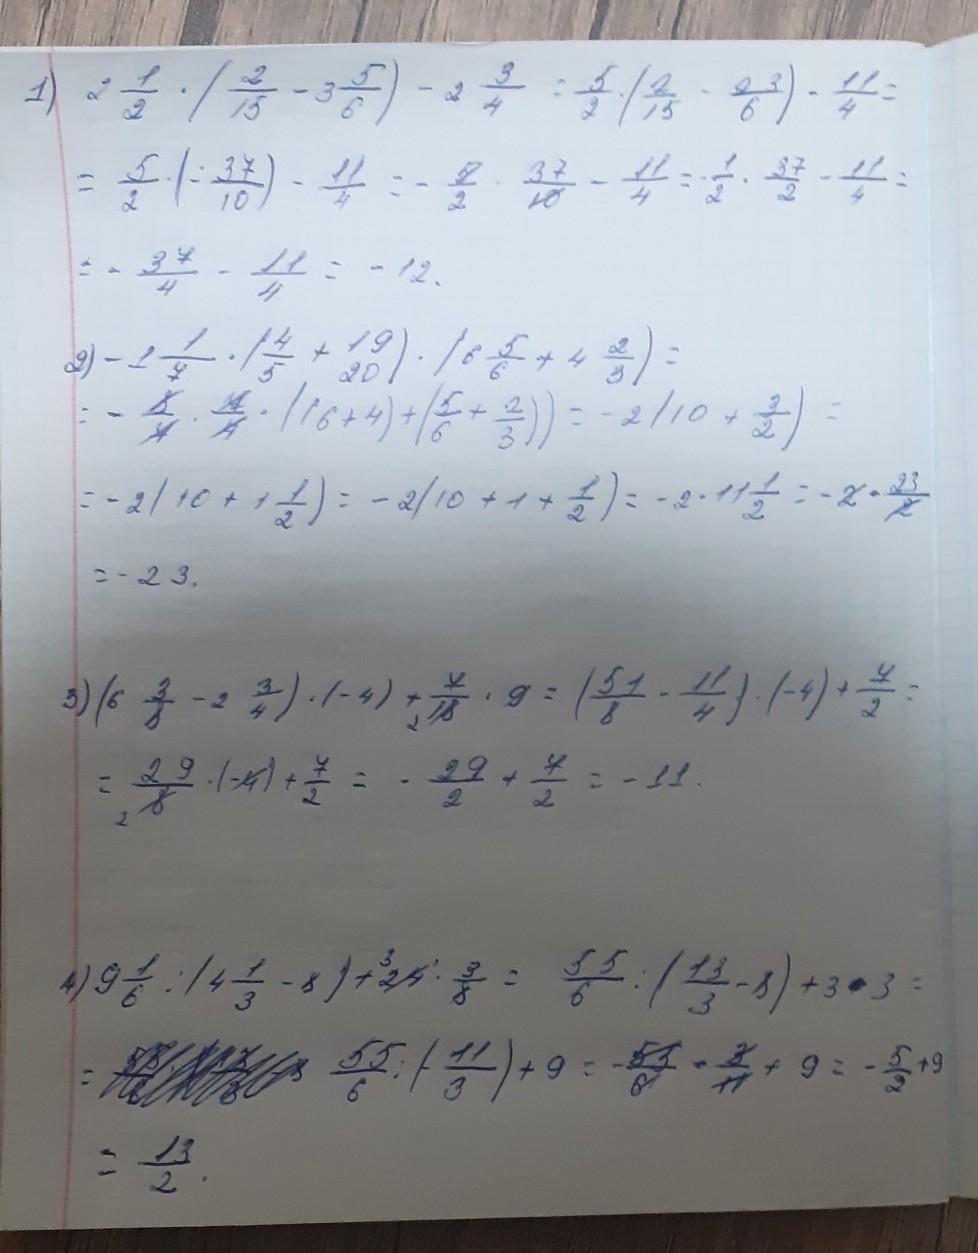 1) 2 1/2 · (2/15 - 3 5/6) - 2 3/4 = 5/2 · (2/15 - 23/6) - 11/4 =
= 5/2 · (- 37/10) - 11/4 = - 5/2 · 37/10 - 11/4 = - 1/2 · 37/2 - 11/4 =
= - 37/4 - 11/4 = - 12.
2) - 1 1/7 · (4/5 + 19/20) · (6 5/6 + 4 2/3) =
= - 8/7 · 7/4 · ((6 + 4) + (5/6 + 2/3)) = - 2 (10 + 3/2) =
= - 2 (10 + 1 1/2) = - 2 (10 + 1 + 1/2) = - 2 · 11 1/2 = - 2 · 23/2
= - 23.
3) (6 3/8 - 2 3/4) · (-4) + 7/18 · 9 = (51/8 - 11/4) · (-4) + 7/2 =
= 29/8 · (-4) + 7/2 = - 29/2 + 7/2 = - 11.
4) 9 1/6 : (4 1/3 - 8) + 24 · 3/8 = 55/6 : (13/3 - 8) + 3 · 3 =
= 55/6 : (- 11/3) + 9 = - 55/6 · 3/11 + 9 = - 5/2 + 9
= 13/2.